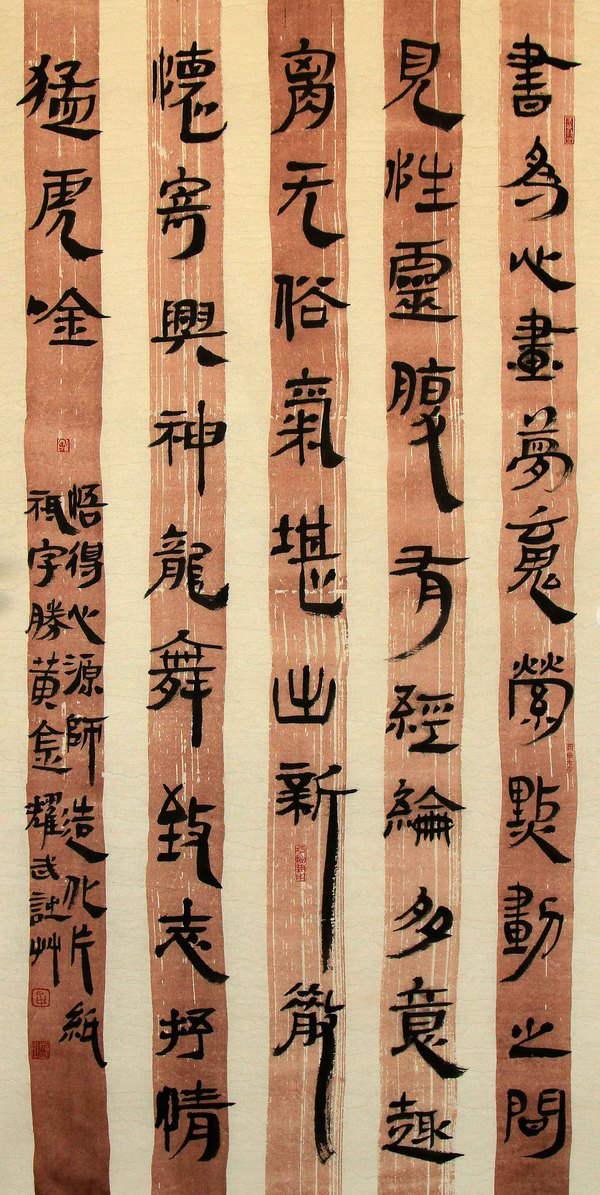 書為心畫夢魂縈點動之間
見性靈腹有經綸多意趣
胷无俗氣堪出新散
懷寄興神龍舞致志抒情
猛虎唫
悟得心源師造化片紙
祇字勝黃金耀武詩艸